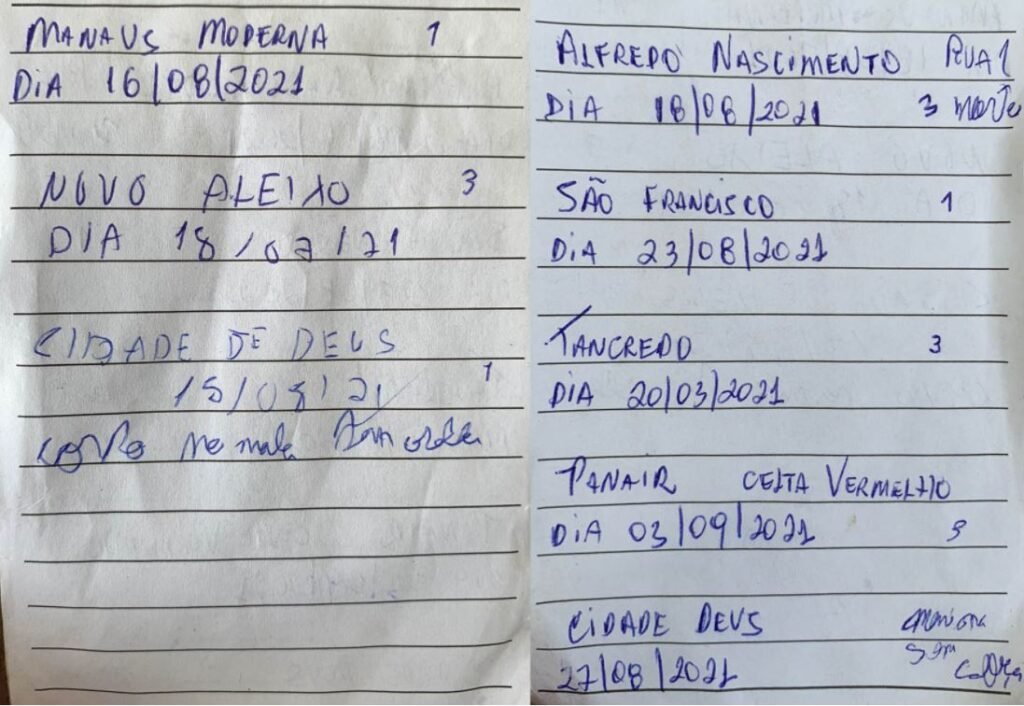 MANAUS MODERNA 1
DIA 16/08/2021
NOVO ALEIXO 3
DIA 18/07/21
CIDADE DE DEUS
15/08/21 1
corpo na mala
ALFREDO NASCIMENTO RUA 1
DIA 18/08/2021 3 morte
SÃO FRANCISCO 1
DIA 23/08/2021
TANCREDO 3
DIA 20/03/2021
PANAIR CELTA VERMELHO
DIA 03/09/2021 3
CIDADE DEUS
sem
27/08/2021 cabeça